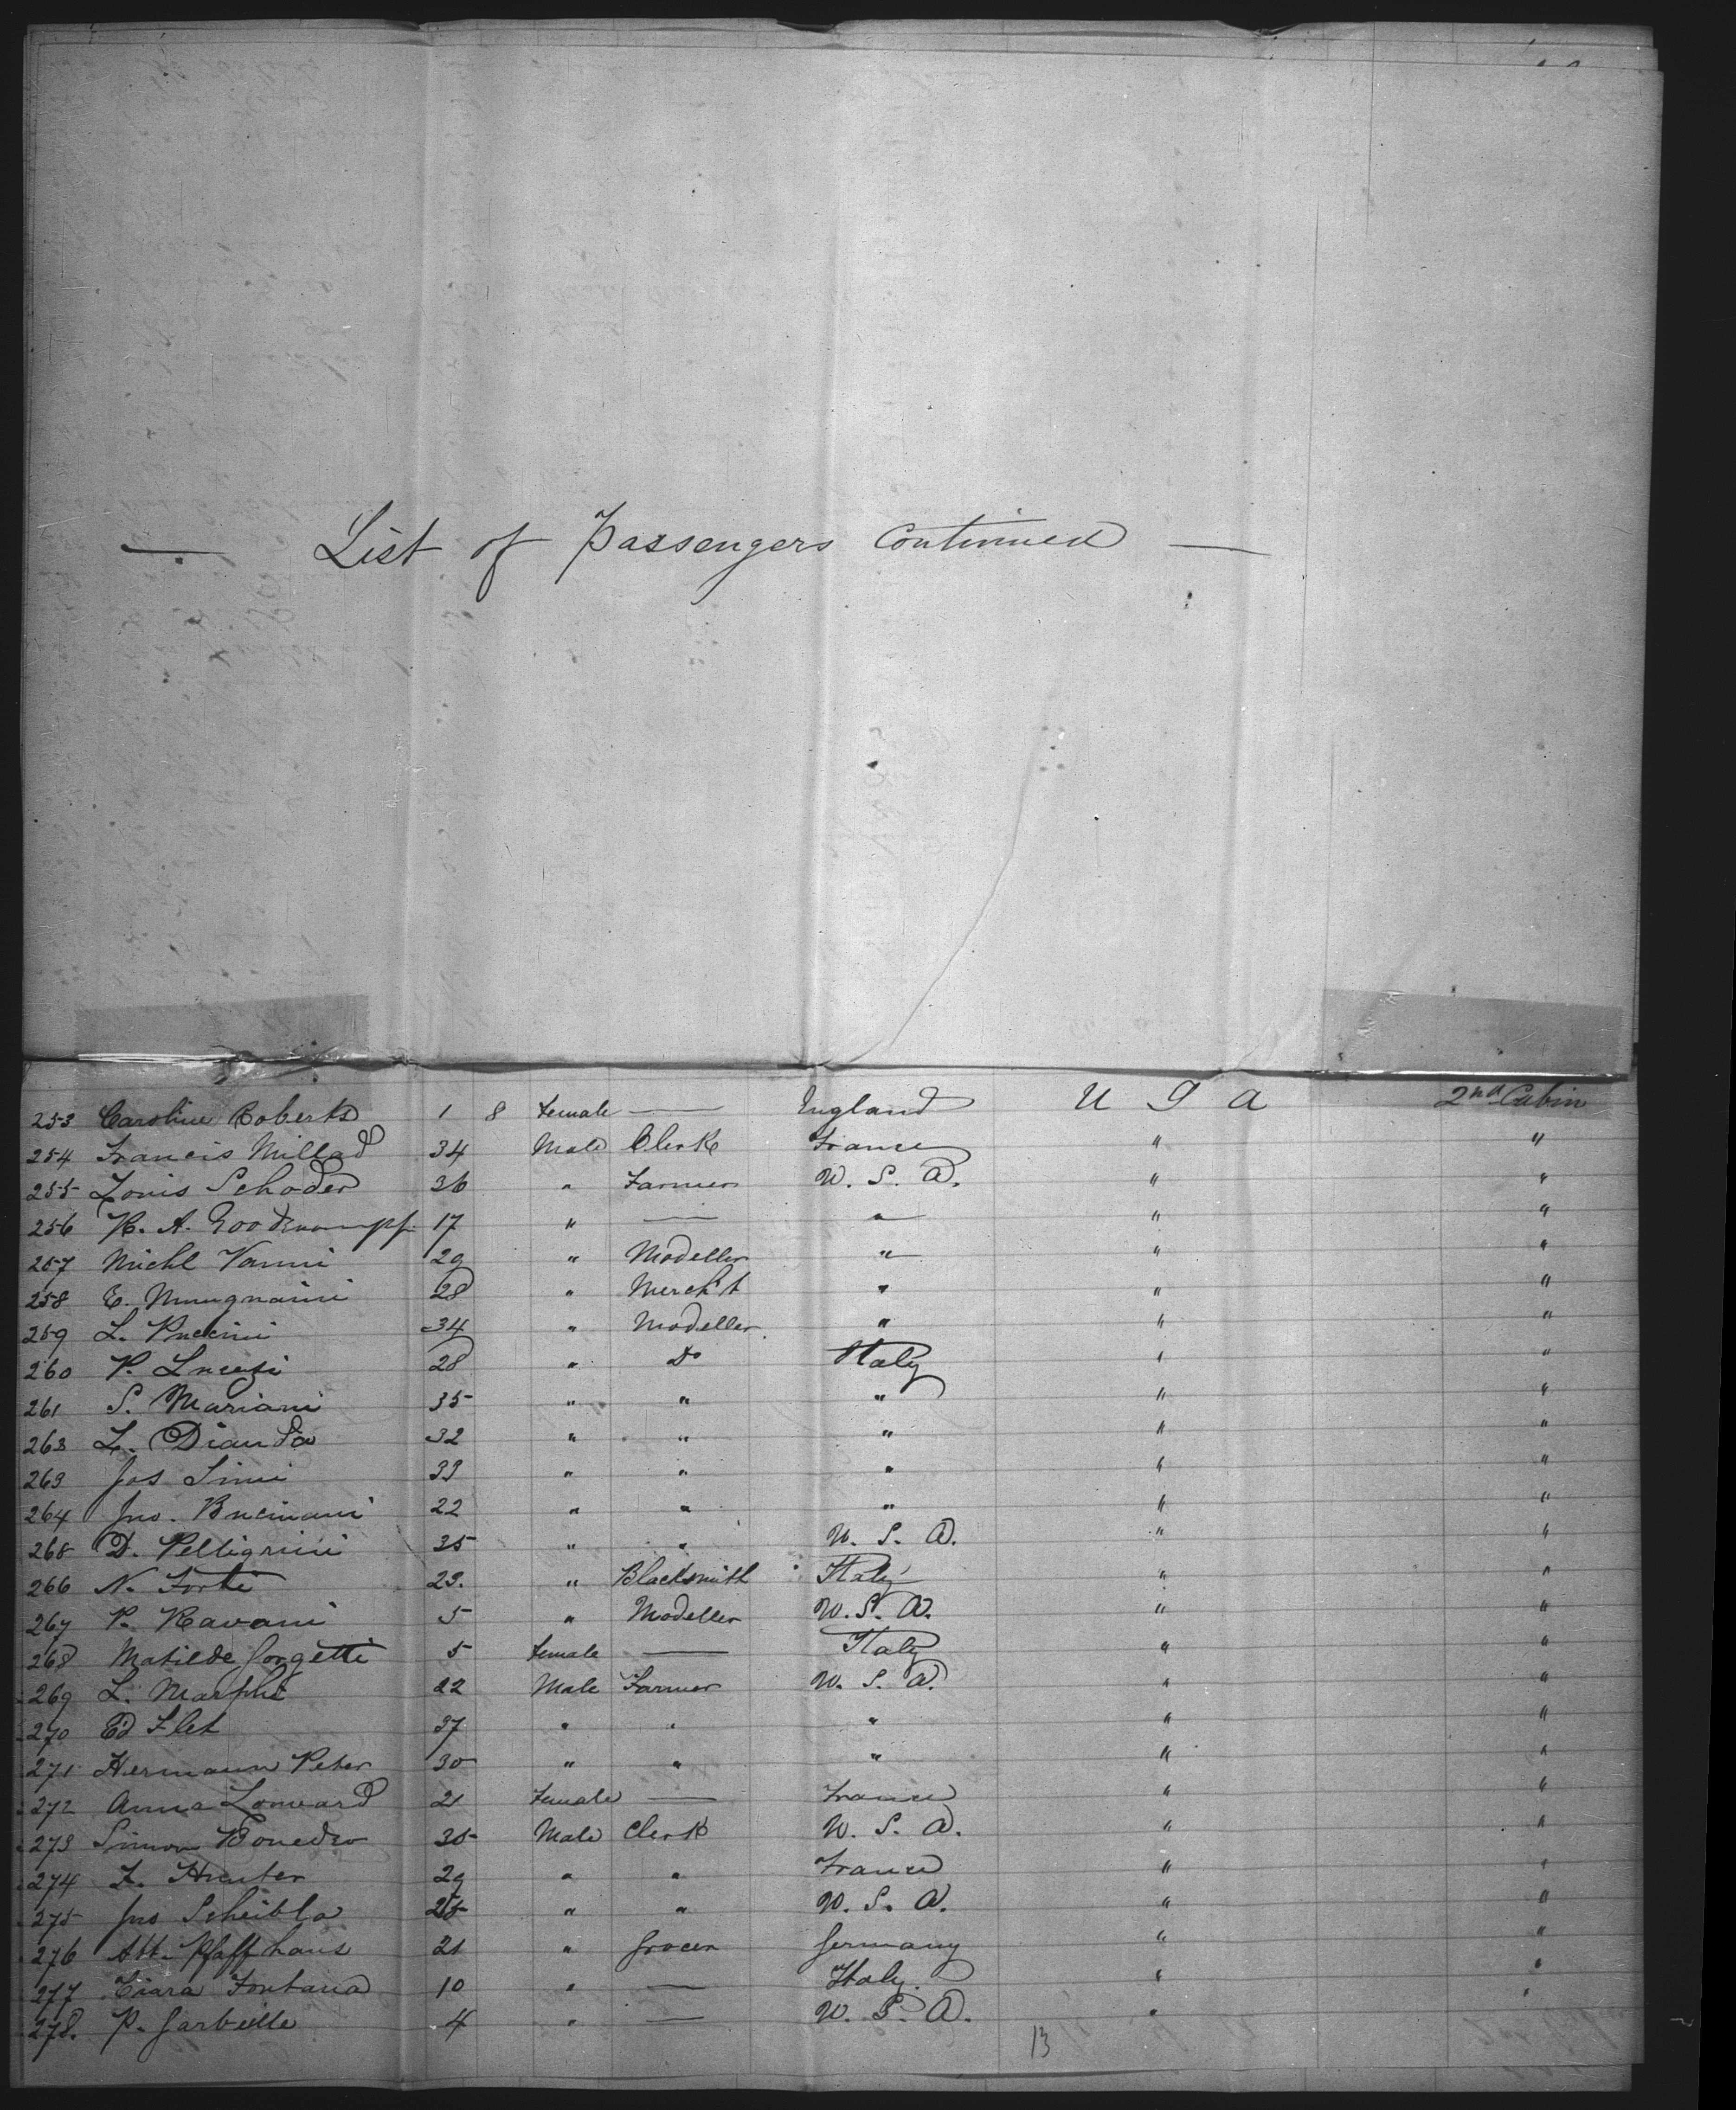 — List of Passengers Continued —
253 Caroline Roberts 1 8 Female — England U S A 2nd Cabin
254 Francis Millad 34 Male Clerk France " "
255 Louis Schoder 36 " Farmer U. S. A. " "
256 H. A. 17 " — " " "
257 Michl Vanni 29 " Modeller " " "
258 E. Mungnaini 28 " Mercht " " "
259 L. Puccini 34 " Modeller " " "
260 P. Lucezi 28 " Do Italy " "
261 S. Mariani 35 " " " " "
263 L. Dianda 32 " " " " "
263 Jos Simi 33 " " " " "
264 Jno. Bucinani 22 " " " " "
265 D. Pelligrini 35 " " U. S. A. " "
266 N. Forti 23. " Blacksmith Italy " "
267 P. Ravani 5 " Modeller U. S. A. " "
268 Matilde Gorgetti 5 Female — Italy " "
269 L. Marphe 22 Male Farmer U. S. A. " "
270 Ed Flet 37 " " " " "
271 Hermann Peter 30 " " " " "
272 Anna Lonvard 21 Female — France " "
273 Simon Bonedeo 35 Male Clerk U. S. A. " "
274 F. Hunter 29 " " France " "
275 Jno Scheibla 25 " " U. S. A. " "
276 Att. Pfaffhaus 21 " Grocer Germany " "
277 Ciara Fontana 10 " — Italy. " "
278. P. Garbelle 4 " — U. S. A. " "
13